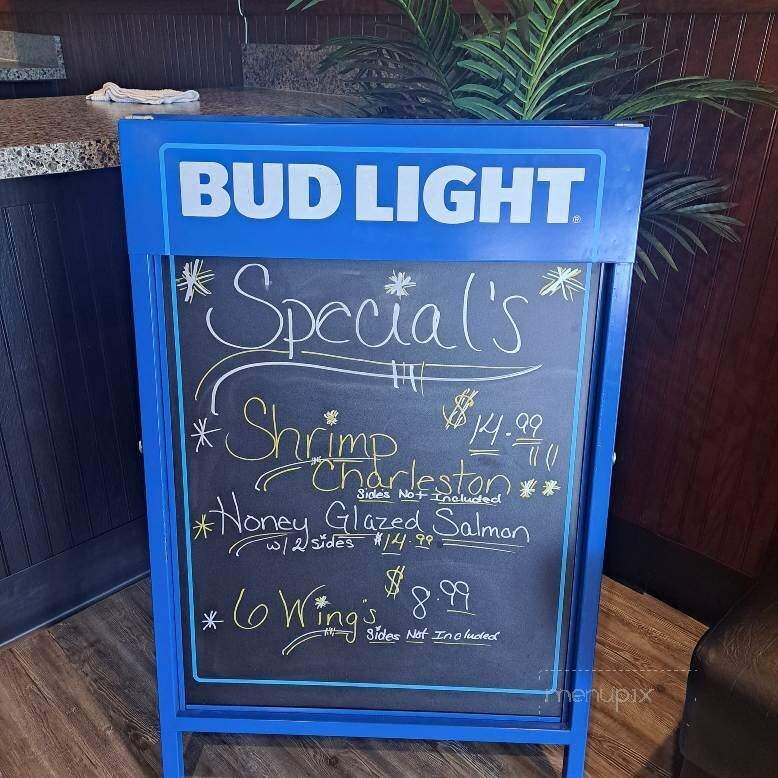 BUD LIGHT®
Special's
Shrimp $14.99
Charleston
Sides Not Included
Honey Glazed Salmon
w/2 sides $14.99
6 Wing's $8.99
Sides Not Included
menupix